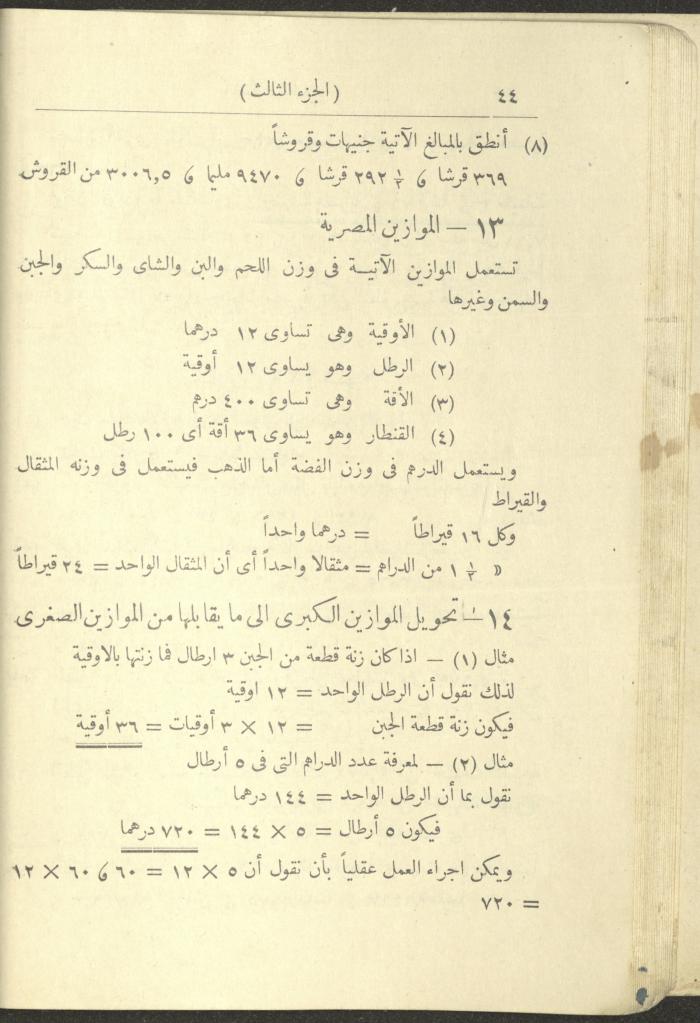 ٤٤ (الجزء الثالث)
(٨) أنطق بالمبالغ الآتية جنيهات وقروشاً
٣٦٩ قرشا ، ½ ٢٩٢ قرشا ، ٩٤٧٠ مليما ، ٣٠٠٦,٥ من القروش
١٣ — الموازين المصرية
تستعمل الموازين الآتيـة فى وزن اللحم والبن والشاى والسكر والجبن
والسمن وغيرها
(١) الأوقية وهى تساوى ١٢ درهما
(٢) الرطل وهو يساوى ١٢ أوقية
(٣) الأقة وهى تساوى ٤٠٠ درهم
(٤) القنطار وهو يساوى ٣٦ أقة أى ١٠٠ رطل
ويستعمل الدرهم فى وزن الفضة أما الذهب فيستعمل فى وزنه المثقال
والقيراط
وكل ١٦ قيراطاً = درهما واحداً
« ½ ١ من الدراهم = مثقالا واحداً أى أن المثقال الواحد = ٢٤ قيراطاً
١٤ — تحويل الموازين الكبرى الى ما يقابلها من الموازين الصغرى
مثال (١) — اذا كان زنة قطعة من الجبن ٣ ارطال فما زنتها بالاوقية
لذلك نقول أن الرطل الواحد = ١٢ اوقية
فيكون زنة قطعة الجبن = ١٢ × ٣ أوقيات = ٣٦ أوقية
مثال (٢) — لمعرفة عدد الدراهم التى فى ٥ أرطال
نقول بما أن الرطل الواحد = ١٤٤ درهما
فيكون ٥ أرطال = ٥ × ١٤٤ = ٧٢٠ درهما
ويمكن اجراء العمل عقلياً بأن نقول أن ٥ × ١٢ = ٦٠ ، ٦٠ × ١٢
= ٧٢٠